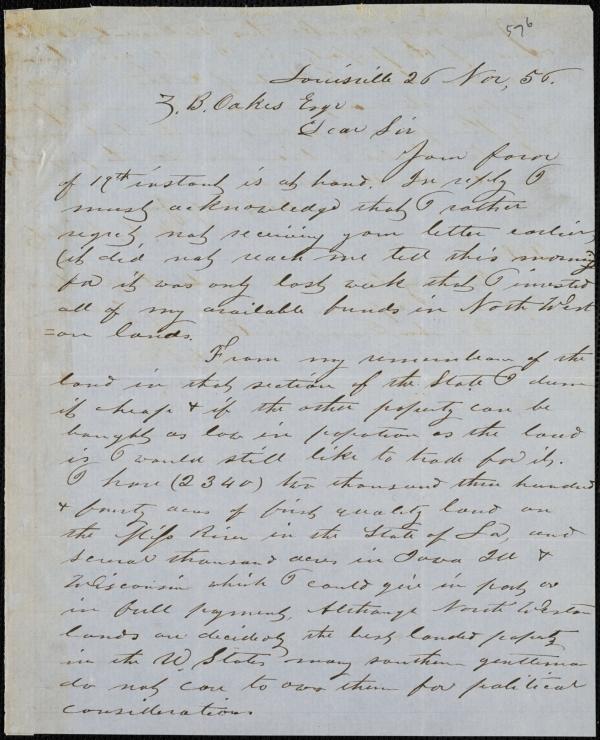 576
Louisville 26 Nov, 56.
Z. B. Oakes Esqr
Dear Sir
Your favor
of 19th instant is at hand. In reply I
must acknowledge that I rather
regret not receiving your letter earlier,
(it did not reach me till this morning
for it was only last week that I invested
all of my available funds in North West
=ern lands.
From my remembrance of the
land in that section of the State I deem
it cheap & if the other property can be
bought as low in proportion as the land
is I would still like to trade for it.
I have (2340) two thousand three hundred
& fourty acres of first quality land on
the Miss River in the State of La, and
several thousand acres in Iowa Ill &
Wisconsin which I could give in part or
in full payment. Although North Western
lands are decidedly the best landed property
in the U. States many southern gentlemen
do not care to own them for political
considerations